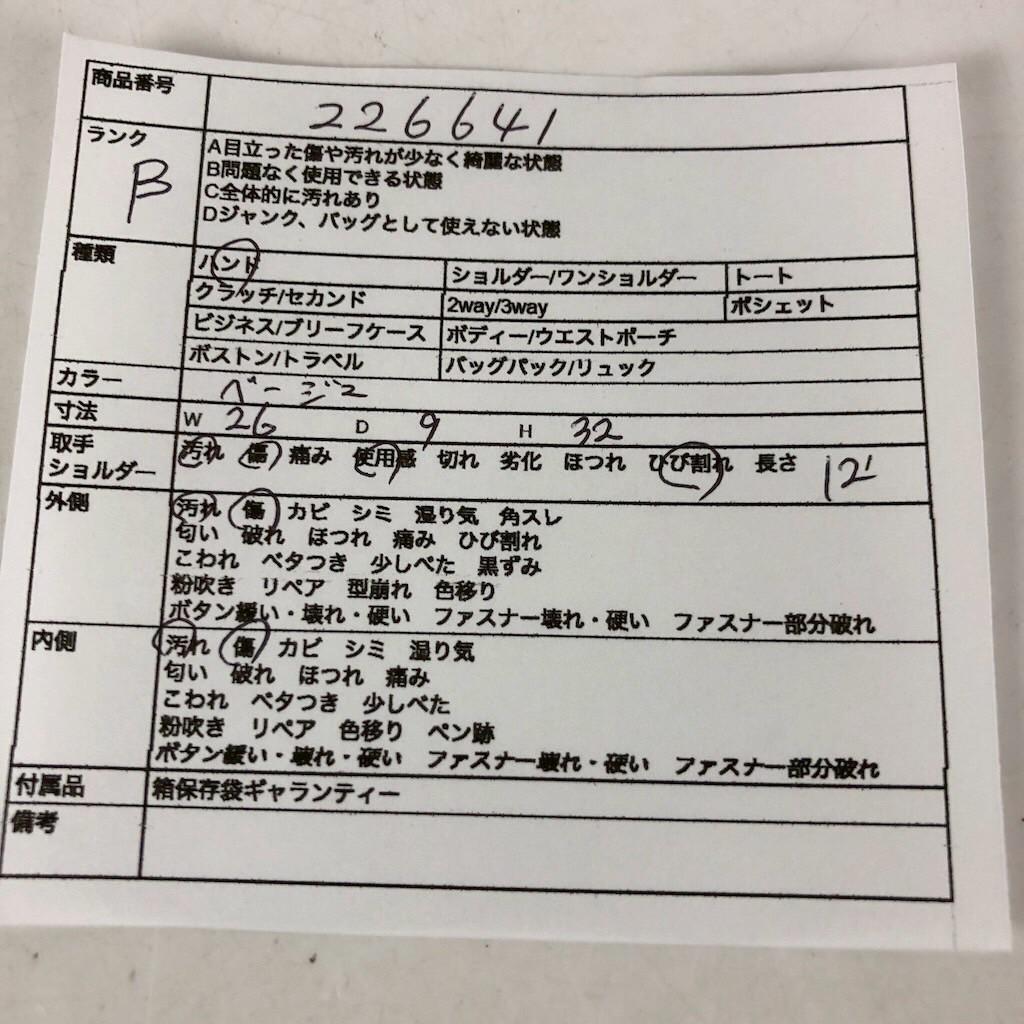 商品番号 226641
ランク B
A目立った傷や汚れが少なく綺麗な状態
B問題なく使用できる状態
C全体的に汚れあり
Dジャンク、バッグとして使えない状態
種類 ハンド ショルダー/ワンショルダー トート
クラッチ/セカンド 2way/3way ポシェット
ビジネス/ブリーフケース ボディー/ウエストポーチ
ボストン/トラベル バッグパック/リュック
カラー ベージュ
寸法 W 26 D 9 H 32
取手
ショルダー
汚れ 傷 痛み 使用感 切れ 劣化 ほつれ ひび割れ 長さ
外側 汚れ 傷 カビ シミ 湿り気 角スレ
匂い 破れ ほつれ 痛み ひび割れ
こわれ ベタつき 少しべた 黒ずみ
粉吹き リペア 型崩れ 色移り
ボタン緩い・壊れ・硬い ファスナー壊れ・硬い ファスナー部分破れ
内側 汚れ 傷 カビ シミ 湿り気
匂い 破れ ほつれ 痛み
こわれ ベタつき 少しべた
粉吹き リペア 色移り ペン跡
ボタン緩い・壊れ・硬い ファスナー壊れ・硬い ファスナー部分破れ
付属品 箱保存袋ギャランティー
備考